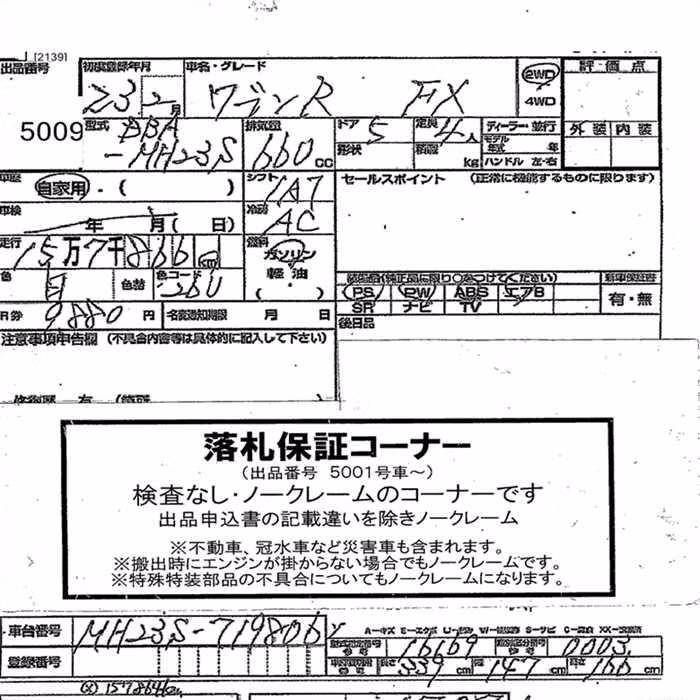 [2139]
出品番号 初度登録年月 車名・グレード 2WD 評価点
23 2月 ワゴンR FX 4WD
5009 型式 DBA-MH23S 排気量 660cc ドア 5 定員 4人 ディーラー・並行 外装 内装
形状 積載 kg モデル年式 年 ハンドル 左・右
車歴 自家用・( ) シフト IA7 セールスポイント (正常に機能するものに限ります)
車検 年 月( 日) 冷房 AC
走行 15万7千866km 燃料 ガソリン 軽油 ( ・ )
色 白 色替 色コード 26U 装備品(純正品に限り○をつけてください) 新車保証書
PS PW ABS エアB 有・無
SR ナビ TV
R券 9880円 名変通知期限 月 日 後日品
注意事項申告欄 (不具合内容等は具体的に記入して下さい)
落札保証コーナー
(出品番号 5001号車~)
検査なし・ノークレームのコーナーです
出品申込書の記載違いを除きノークレーム
※不動車、冠水車など災害車も含まれます。
※搬出時にエンジンが掛からない場合でもノークレームです。
※特殊特装部品の不具合についてもノークレームになります。
車台番号 MH23S-719806
登録番号 型式指定番号 16169 類別区分番号 0003
長さ 339cm 幅 147cm 高さ 166cm